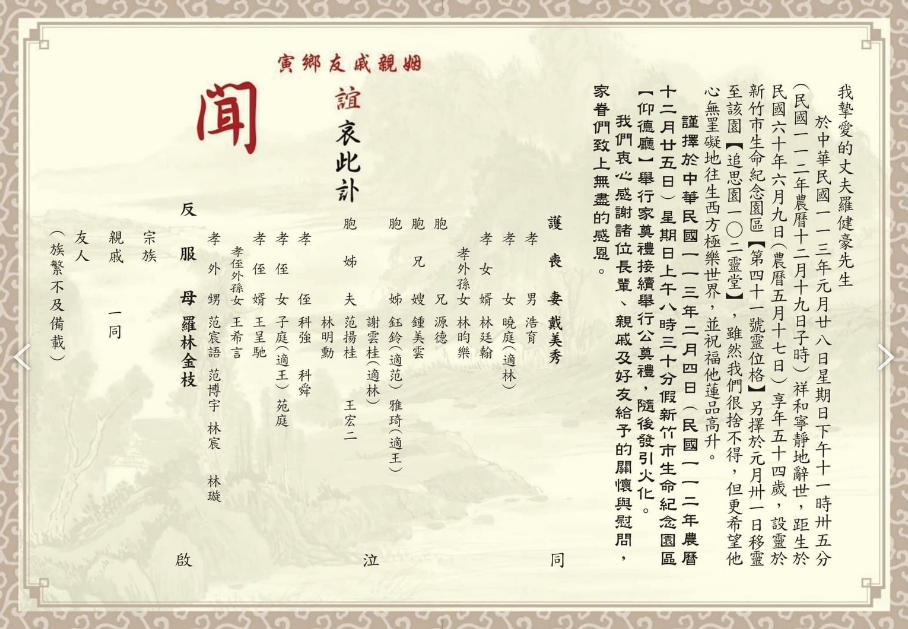 我摯愛的丈夫羅健豪先生
於中華民國一一三年元月廿八日星期日下午十一時卅五分
(民國一一二年農曆十二月十九日子時)祥和寧靜地辭世,距生於
民國六十年六月九日(農曆五月十七日)享年五十四歲,設靈於
新竹市生命紀念園區【第四十一號靈位格】另擇於元月卅一日移靈
至該園【追思園一〇二靈堂】,雖然我們很捨不得,但更希望他
心無罣礙地往生西方極樂世界,並祝福他蓮品高升。
謹擇於中華民國一一三年二月四日(民國一一二年農曆
十二月廿五日)星期日上午八時三十分假新竹市生命紀念園區
【仰德廳】舉行家奠禮接續舉行公奠禮,隨後發引火化。
我們衷心感謝諸位長輩、親戚及好友給予的關懷與慰問,
家眷們致上無盡的感恩。
護喪妻 戴美秀 同
孝男 浩育
孝女 曉庭(適林)
孝女婿 林廷翰
孝外孫女 林昀樂
胞兄 源德
胞兄嫂 鍾美雲
胞姊 鈺鈴(適范) 雅琦(適王)
謝雲桂(適林) 泣
胞姊夫 范揚桂 王宏二
林明勳
孝侄 科強 科舜
孝侄女 子庭(適王) 苑庭
孝侄婿 王呈馳
孝侄外孫女 王希言
孝外甥 范宸語 范博宇 林宸 林璇
反服母 羅林金枝 啟
宗族
親戚 一同
友人
(族繁不及備載)
姻親戚友鄉寅
誼哀此訃
聞